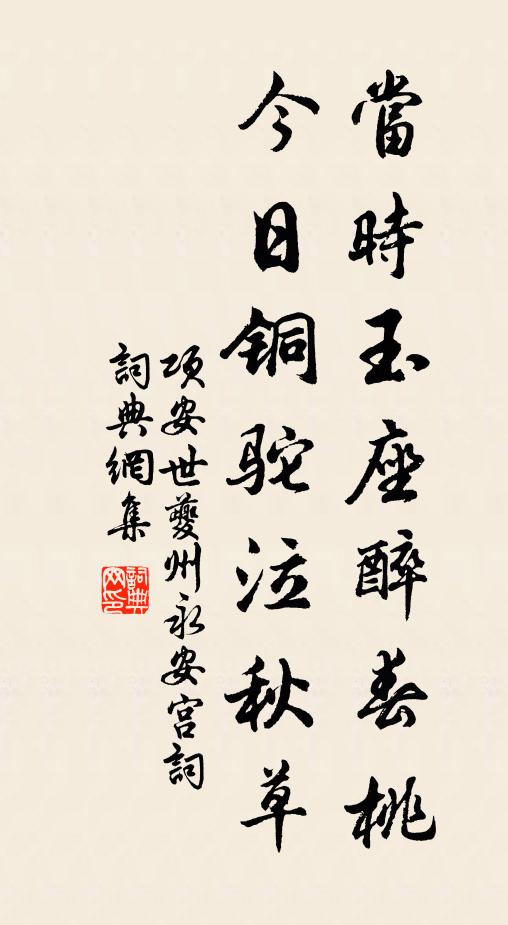 當時玉座醉春桃
今日铜駝泣秋草
項安世夔州永安宮詞
詞典網集
詞典网印